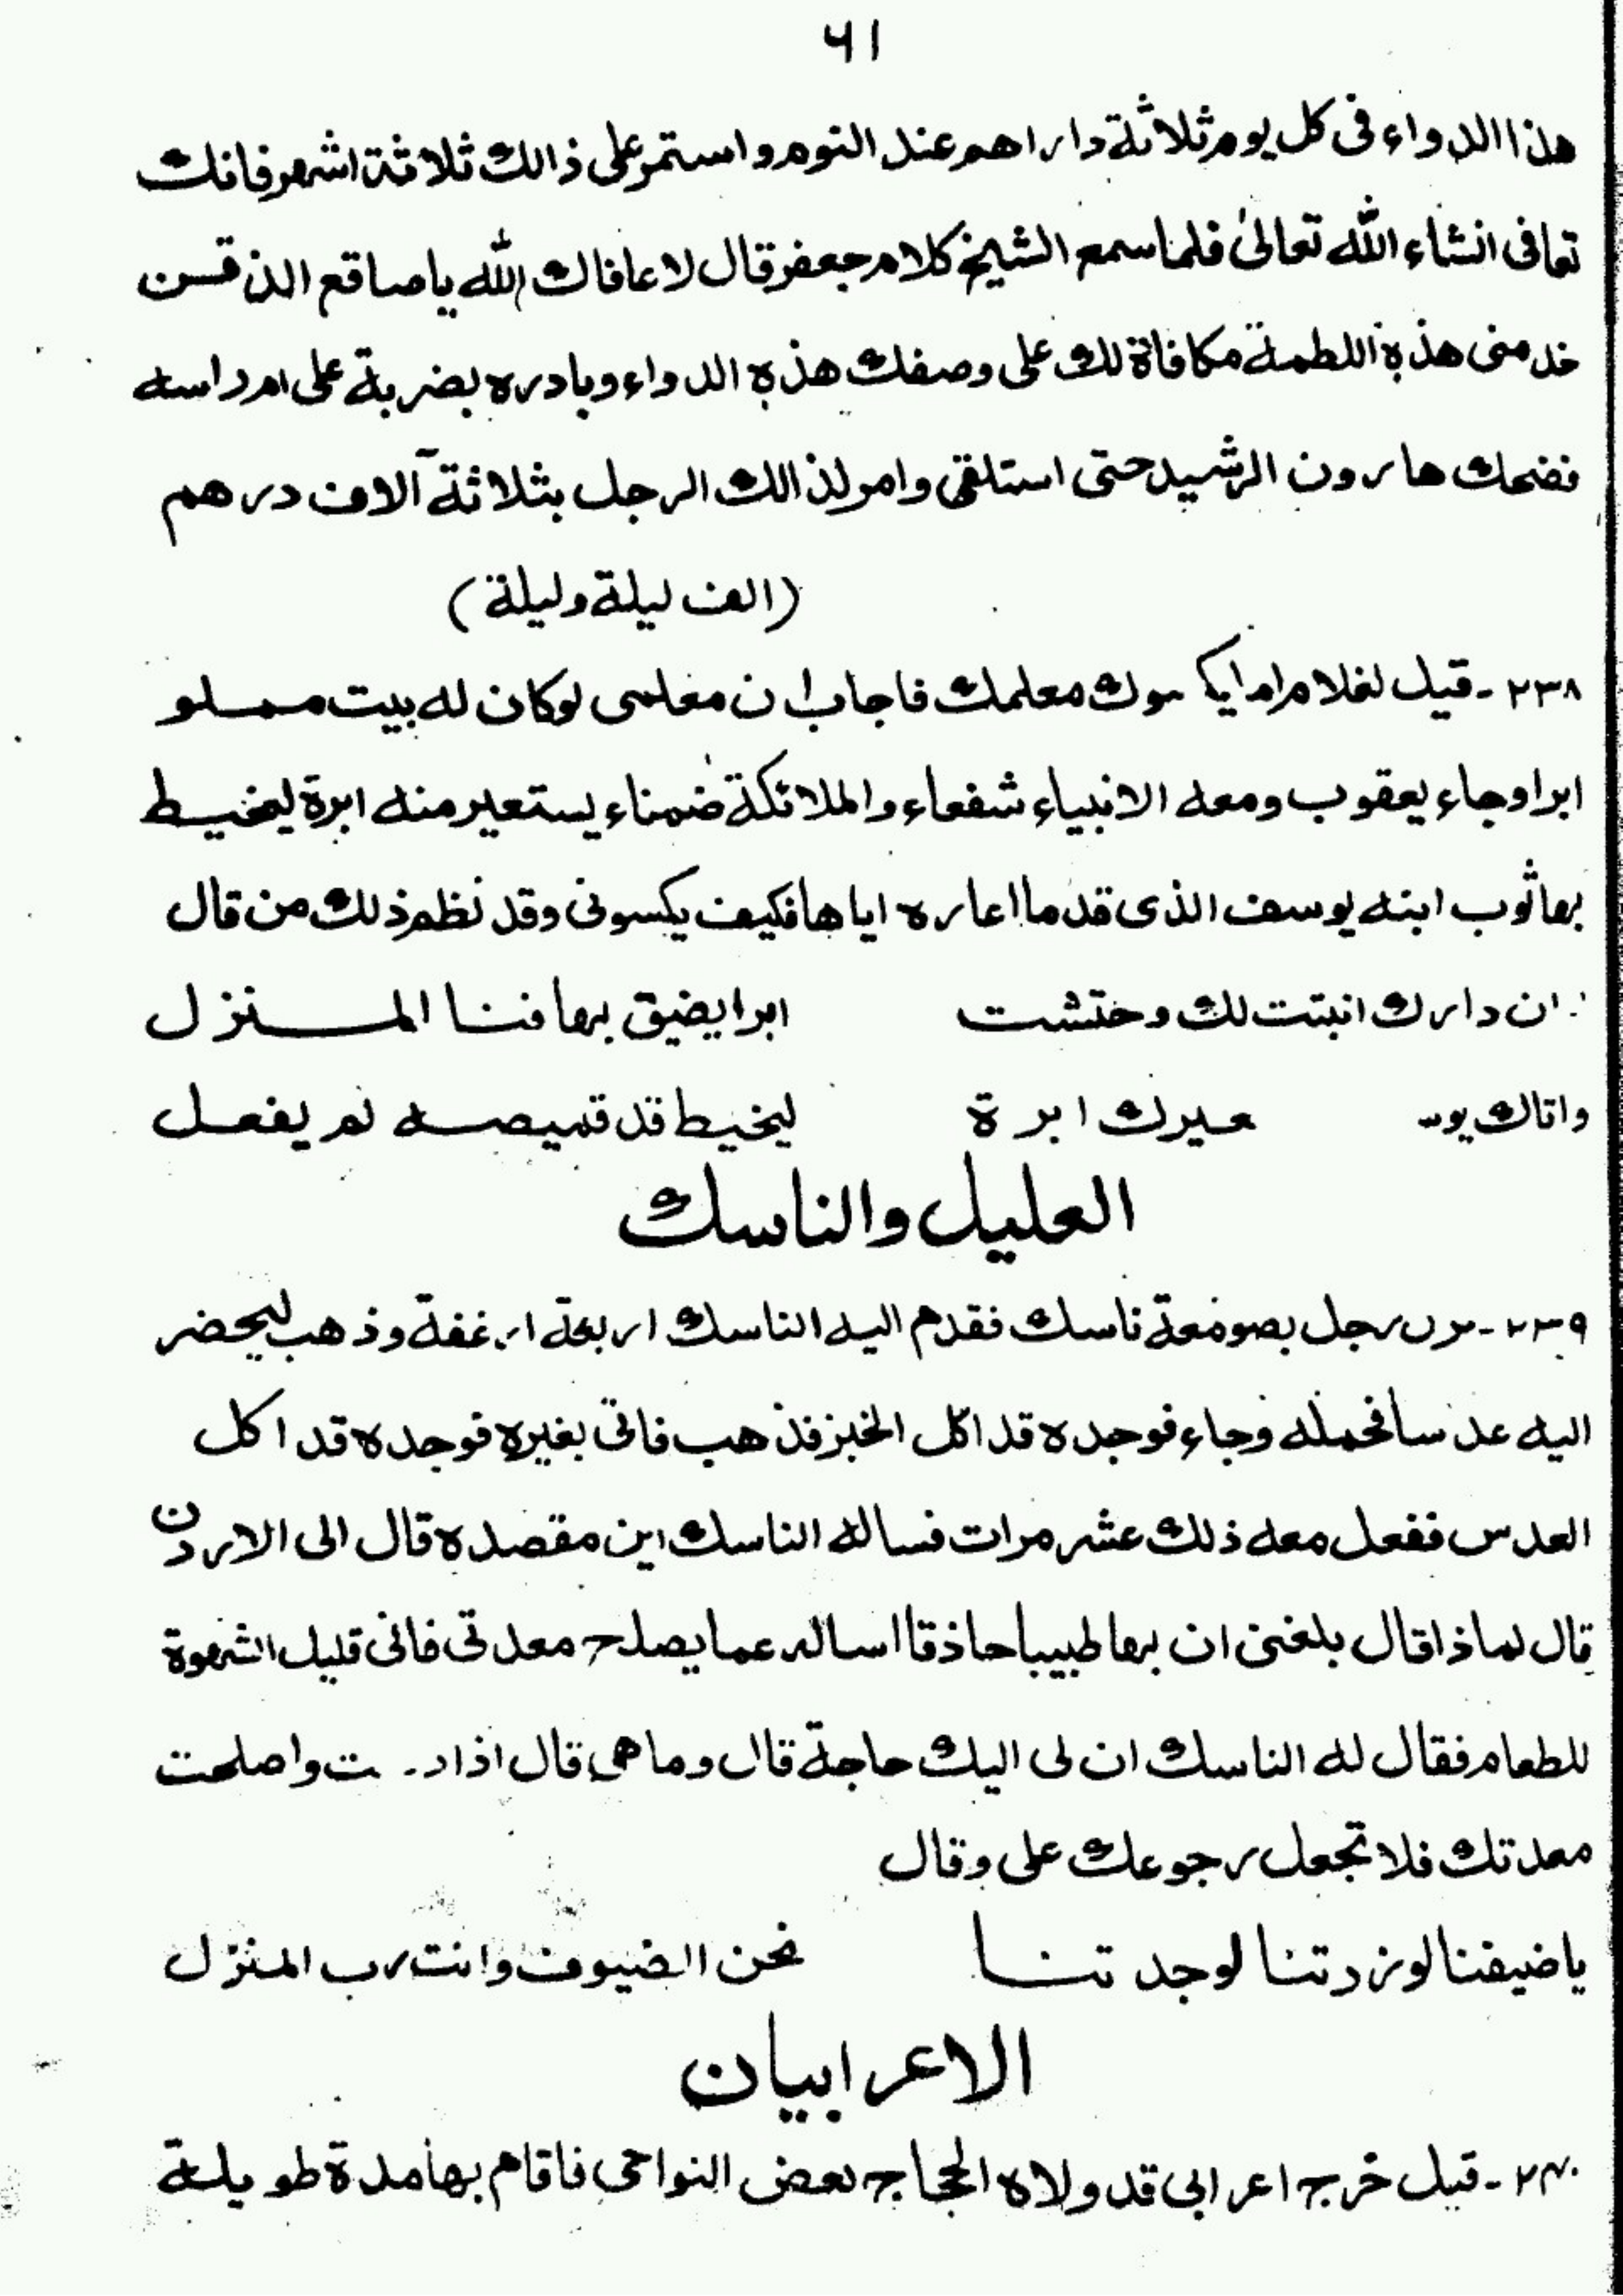 ٦١
هذا الدواء فى كل يوم ثلاثة داراهم عند النوم واستمر على ذالك ثلاثة اشهر فانك
تعافى انشاء الله تعالىٰ فلما سمع الشيخ كلام جعفر قال لا عافاك الله ياصاقع الذقن
خد منى هذه اللطمة مكافاة لك على وصفك هذه الدواء وبادره بضربة على ام راسه
فضحك هارون الرشيد حتى استلقى وامر لذالك الرجل بثلاثة آلاف درهم
(الف ليلة وليلة)
٢٣٨ - قيل لغلام اما يكسوك معلمك فاجاب ان معلمى لوكان له بيت مملو
ابرا وجاء يعقوب ومعه الانبياء شفعاء والملائكة ضمناء يستعير منه ابرة ليخيط
بها ثوب ابنه يوسف الذى قد ما اعاره اياها فكيف يكسونى وقد نظم ذلك من قال
ان دارك انبتت لك وحتشت ابرا يضيق بها فنا المنزل
واتاك يوسـ ـعيرك ابرة ليخيط قد قميصه لم يفعل
العليل والناسك
٢٣٩ - مر رجل بصومعة ناسك فقدم اليه الناسك اربعة ارغفة وذهب ليحضر
اليه عدسا فحمله وجاء فوجده قد اكل الخبز فذهب فاتى بغيره فوجده قد اكل
العدس ففعل معه ذلك عشر مرات فساله الناسك اين مقصده قال الى الاردن
قال لماذا قال بلغنى ان بها طبيبا حاذقا اساله عما يصلح معدتى فانى قليل الشهوة
للطعام فقال له الناسك ان لى اليك حاجة قال وما هى قال اذا ت واصلحت
معدتك فلا تجعل رجوعك على وقال
ياضيفنا لوزرتنا لوجدتنا نحن الضيوف وانت رب المنزل
الاعرابيان
٢٤٠ - قيل خرج اعرابى قد ولاه الحجاج بعض النواحى فاقام بها مدة طويلة